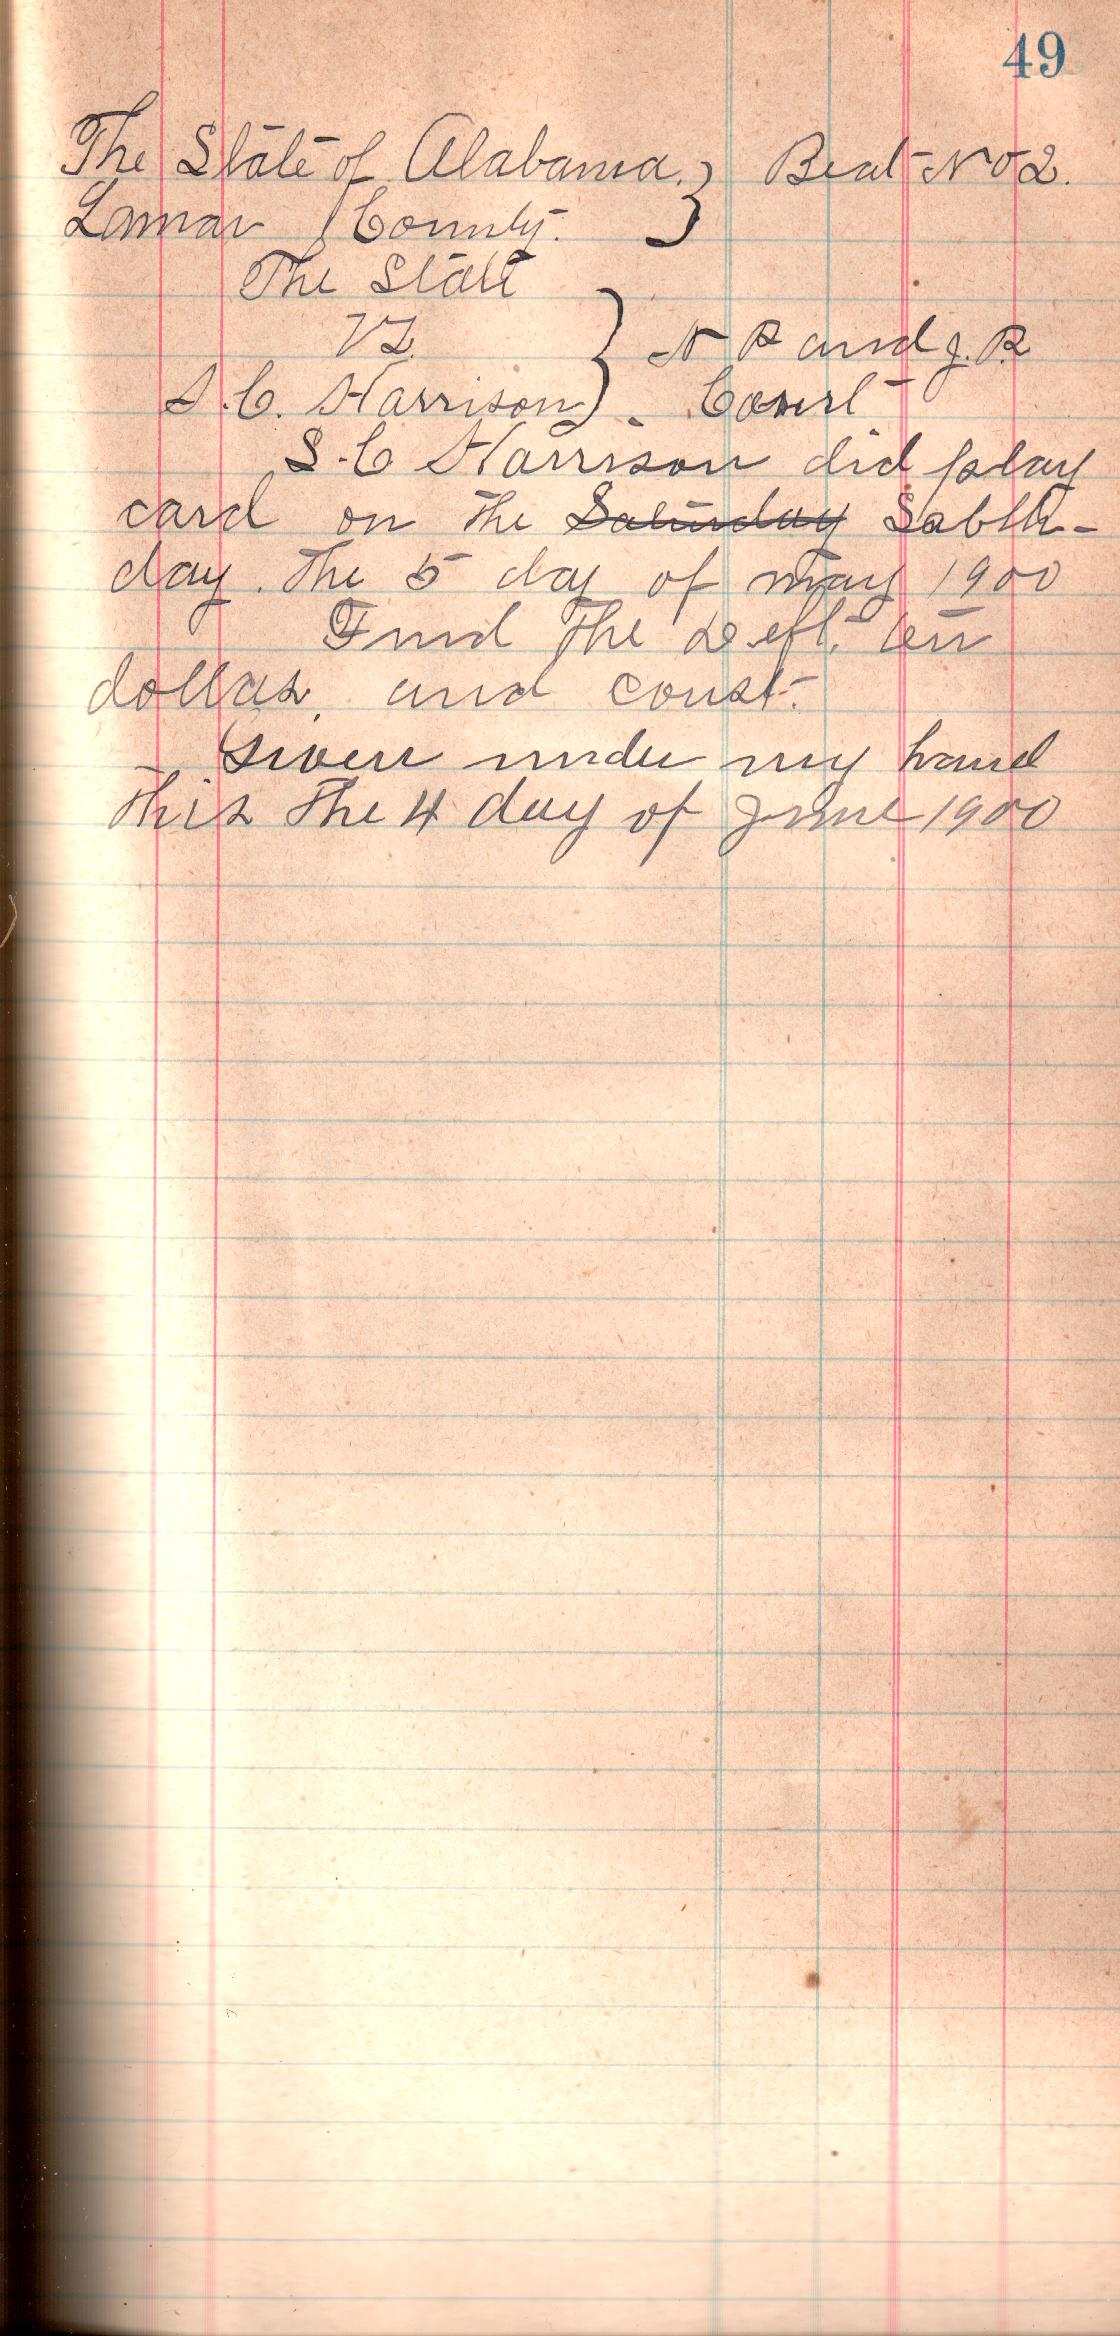 49
The State of Alabama. } Beat No 2.
Lamar County.
The State
VS. } N P and J. P.
S. C. Harrison . Court
S. C Harrison did play
card on the Saturday Sabth-
day. The 5 day of may 1900
Find the Deft. ten
dollas, and coust.
Given under my hand
this the 4 day of June 1900